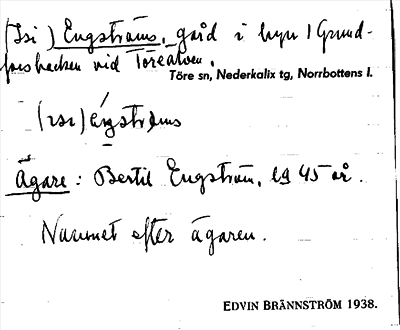 (Isi) Engströms, gård i byn Grund-
forsbacken vid Töreälven.
Töre sn, Nederkalix tg, Norrbottens l.
(ɪsɪ) éŋstrøms
Ägare: Bertil Engström, 45 år.
Namnet efter ägaren.
EDVIN BRÄNNSTRÖM 1938.